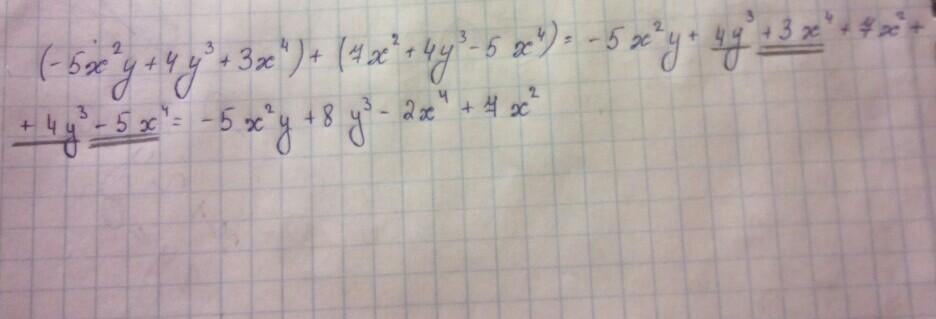 (-5x²y + 4y³ + 3x⁴) + (7x² + 4y³ - 5x⁴) = -5x²y + 4y³ + 3x⁴ + 7x² +
+ 4y³ - 5x⁴ = -5x²y + 8y³ - 2x⁴ + 7x²